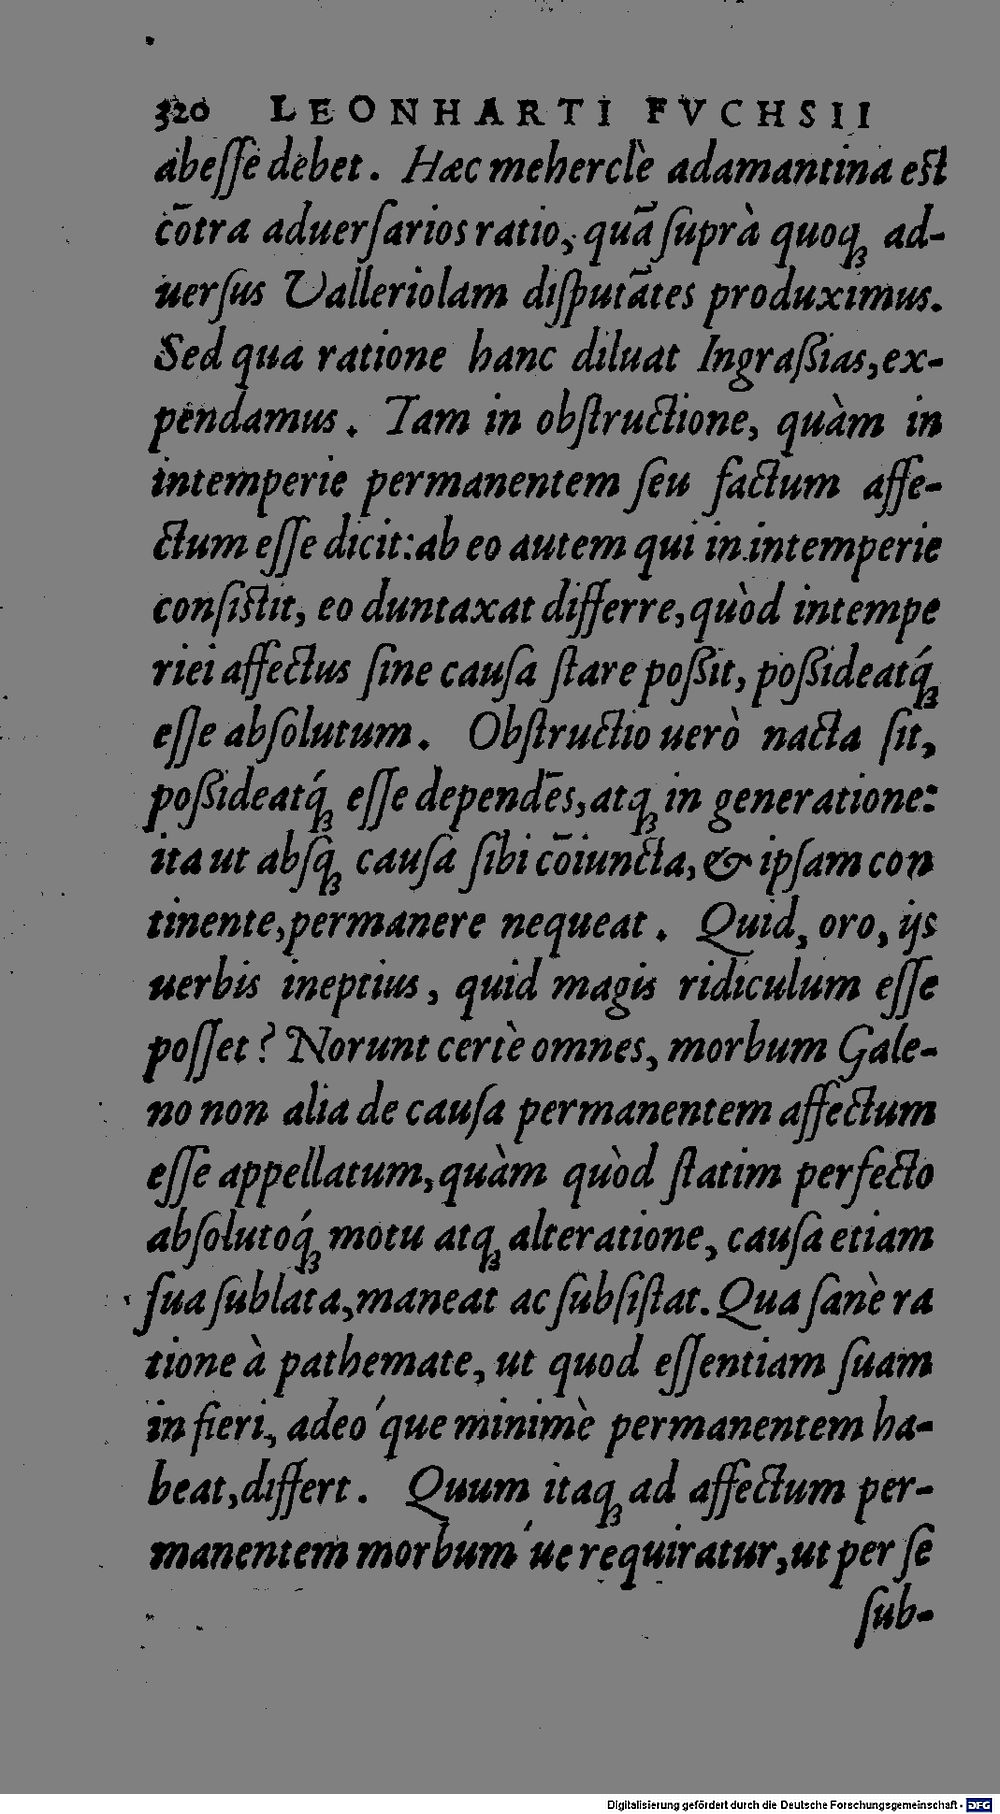 320 LEONHARTI FVCHSII
abeſſe debet. Hæc meherclè adamantina est
cōtra aduerſarios ratio, quā ſuprà quoqꝫ ad-
uerſus Valleriolam diſputātes produximus.
Sed qua ratione hanc diluat Ingraßias, ex-
pendamus. Tam in obſtructione, quàm in
intemperie permanentem ſeu factum affe-
ctum eſſe dicit: ab eo autem qui in intemperie
conſistit, eo duntaxat differre, quòd intempe
riei affectus ſine cauſa ſtare poßit, poßideatq́ꝫ
eſſe abſolutum. Obſtructio uerò nacta ſit,
poßideatq́ꝫ eſſe dependēs, atqꝫ in generatione:
ita ut abſqꝫ cauſa ſibi cōiuncta, & ipſam con
tinente, permanere nequeat. Quid, oro, ijs
uerbis ineptius, quid magis ridiculum eſſe
poſſet? Norunt certè omnes, morbum Gale-
no non alia de cauſa permanentem affectum
eſſe appellatum, quàm quòd ſtatim perfecto
abſolutoq́ꝫ motu atqꝫ alteratione, cauſa etiam
ſua ſublata, maneat ac ſubſiſtat. Qua ſanè ra
tione à pathemate, ut quod eſſentiam ſuam
in fieri, adeó que minimè permanentem ha-
beat, differt. Quum itaqꝫ ad affectum per-
manentem morbum´ue requiratur, ut per ſe
ſub-
Digitalisierung gefördert durch die Deutsche Forschungsgemeinschaft - DFG